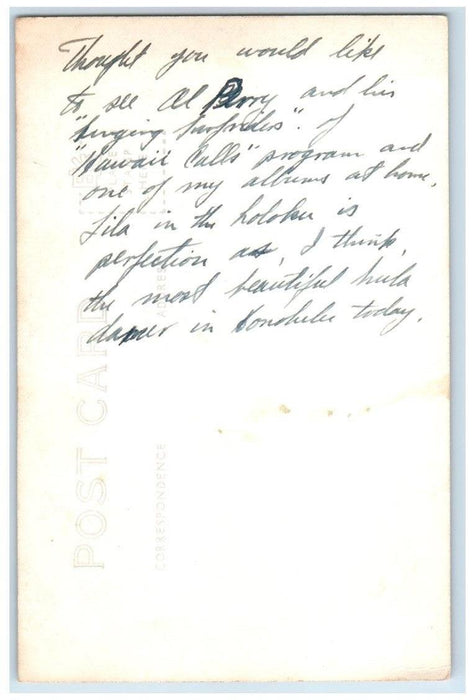 Thought you would like
to see Al Perry and his
"Singing Surfriders". of
"Hawaii Calls" program and
one of my albums at home.
Lila in the holoku is
perfection as, I think,
the most beautiful hula
dancer in Honolulu today.
POST CARD
CORRESPONDENCE
ADDRESS